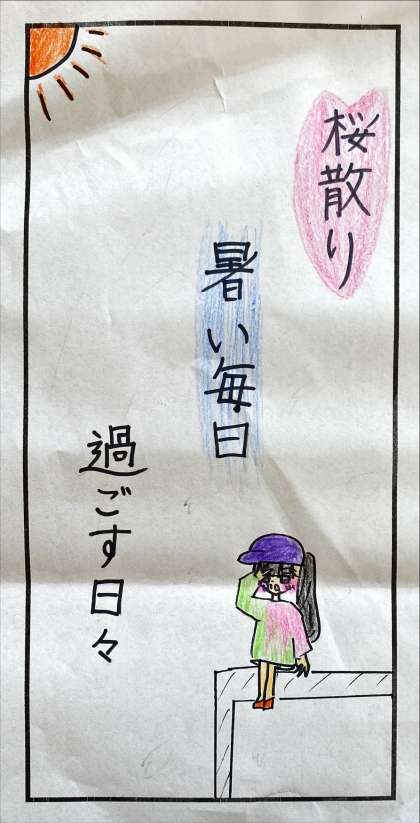 桜散り
暑い毎日
過ごす日々